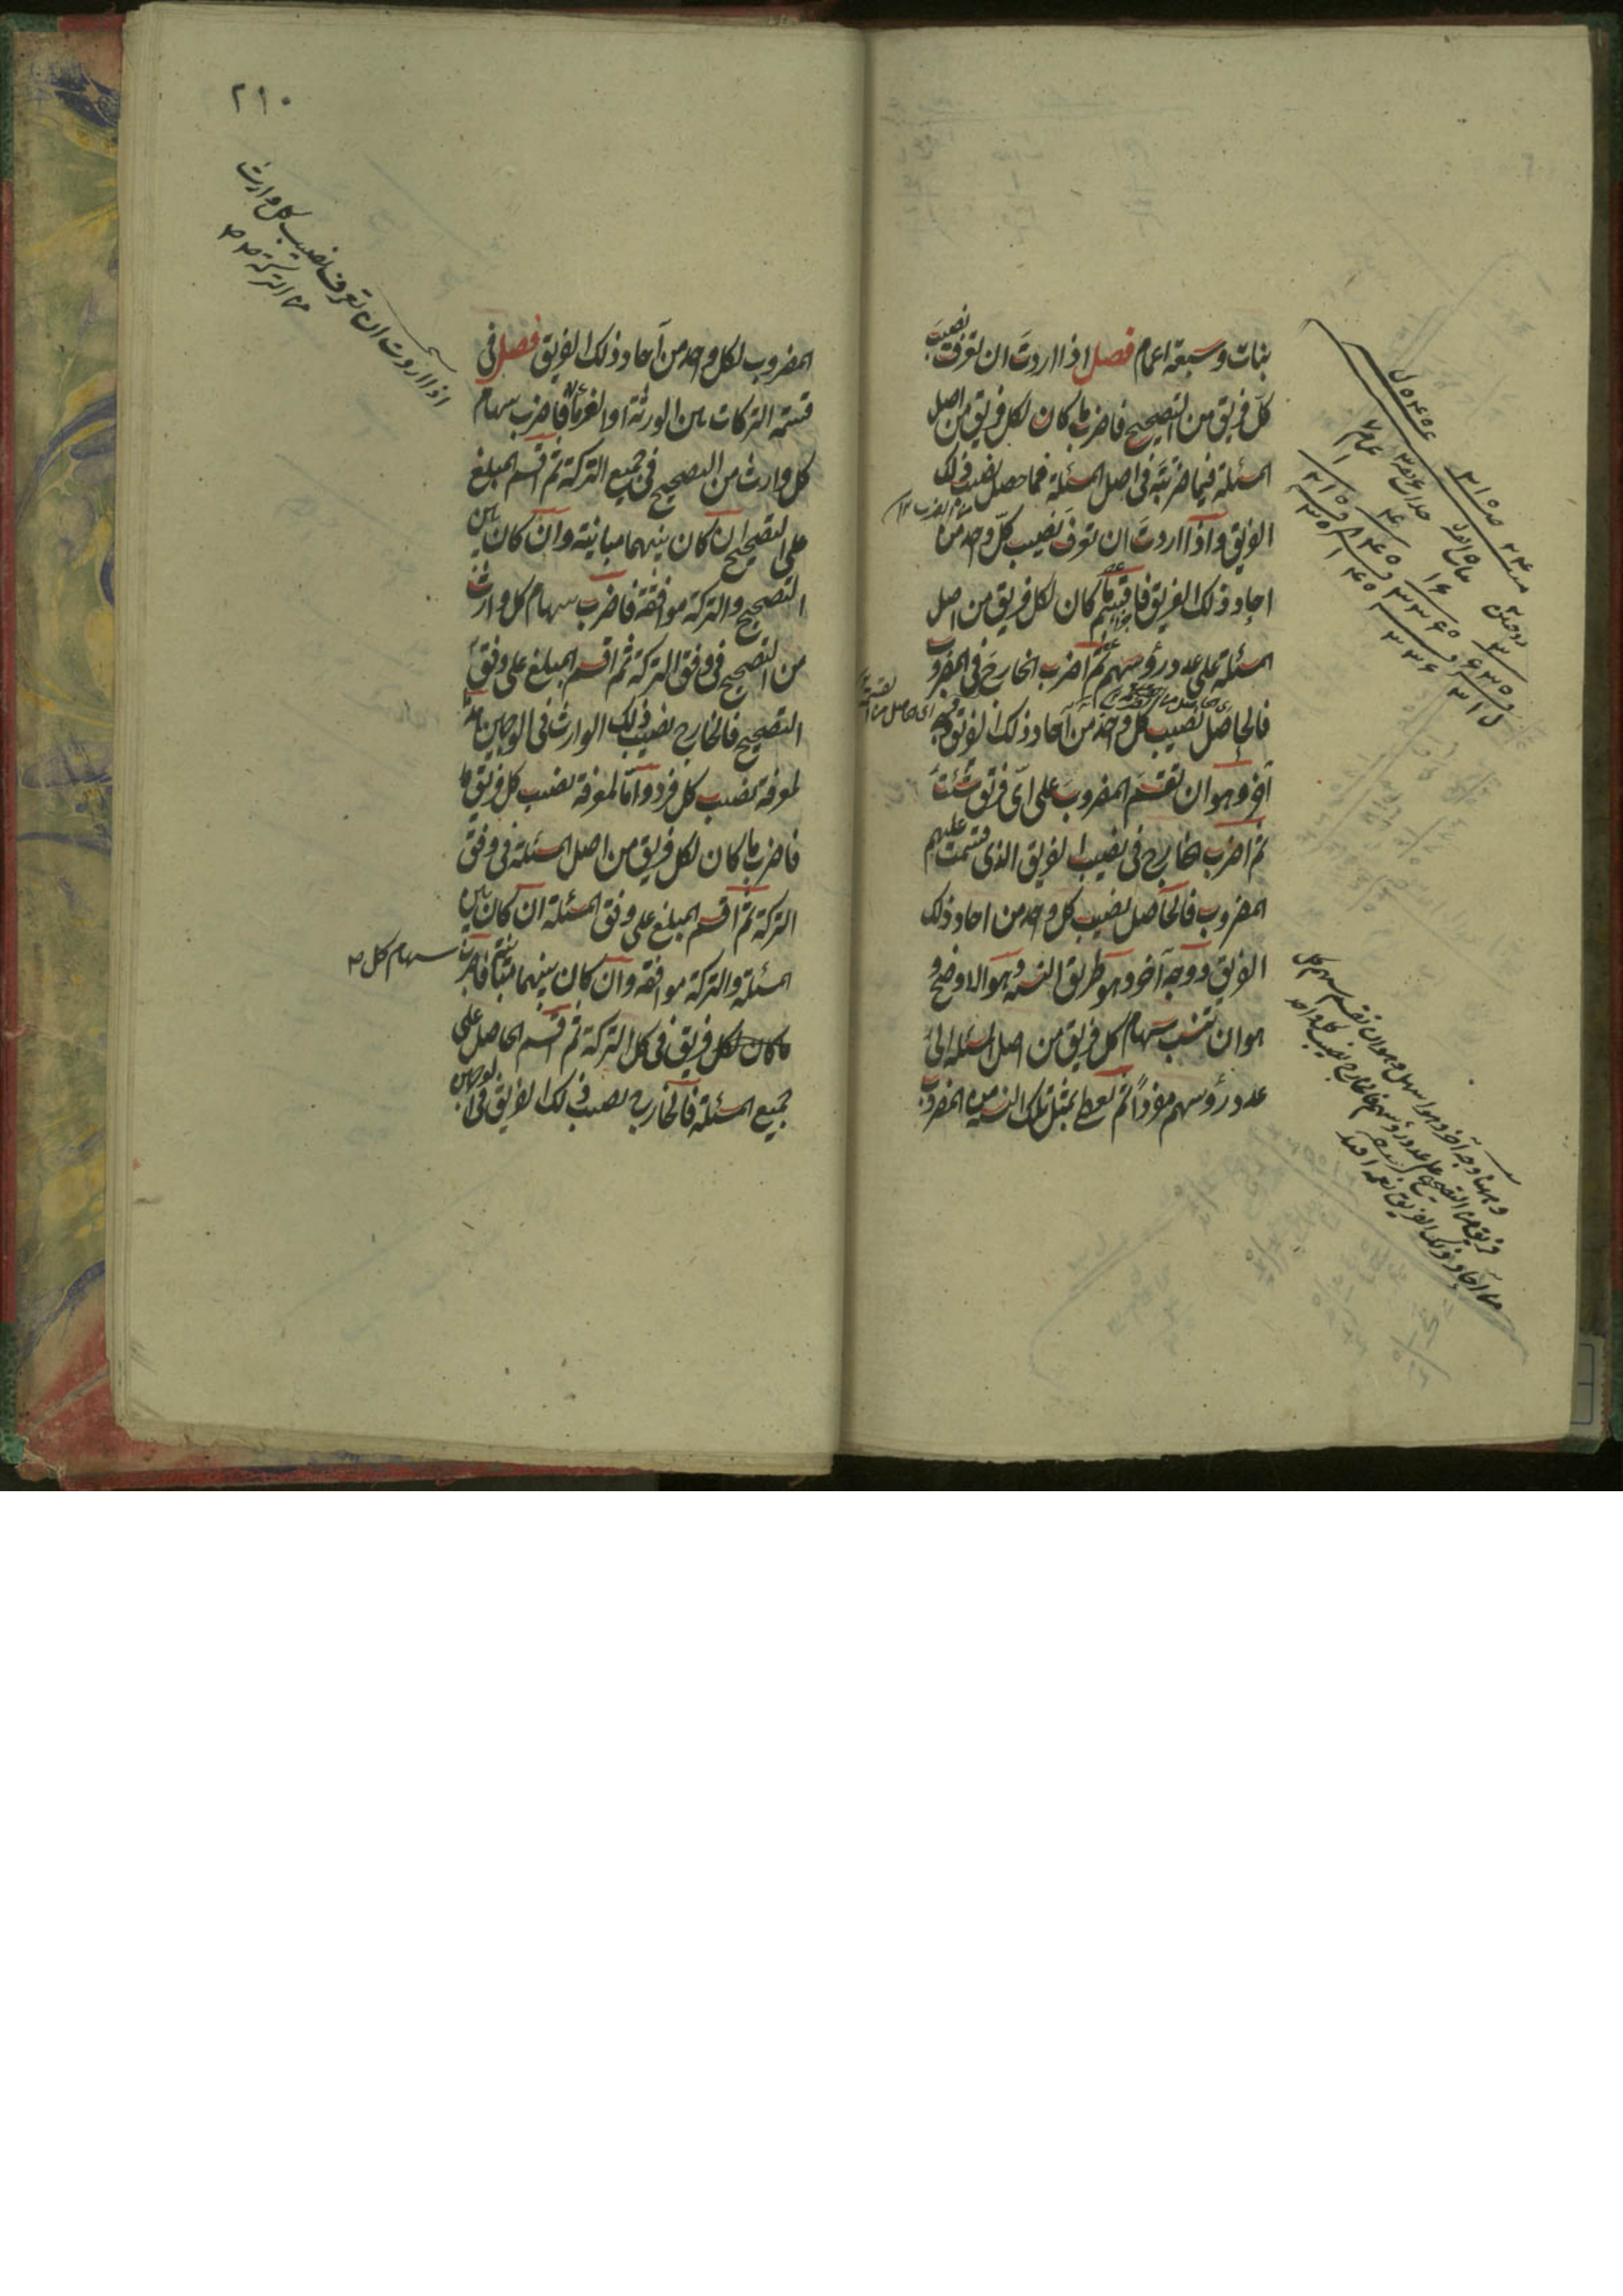 بنات وسبعة اعمام فصل اذا اردت ان تعرف نصيب
كل فريق من التصحيح فاضرب ما كان لكل فريق من اصل
المسئلة فيما ضربته فى اصل المسئلة فما حصل نصيب ذلك
الفريق واذا اردت ان تعرف نصيب كل واحد من
احاد ذلك الفريق فاقسم ما كان لكل فريق من اصل
المسئلة على عدد رؤسهم ثم اضرب الخارج فى المضروب
فالحاصل نصيب كل واحد من آحاد ذلك الفريق وجه
آخر وهو ان تقسم المضروب على اى فريق شئت
ثم اضرب الخارج فى نصيب الفريق الذى قسمت عليهم
المضروب فالحاصل نصيب كل واحد من احاد ذلك
الفريق ووجه آخر وهو طريق النسبة وهو الاوضح و
هو ان تنسب سهام كل فريق من اصل المسئلة الى
عدد رؤسهم مفردا ثم تعطى بمثل تلك النسبة من المضروب
وههنا وجه آخر وهو اسهل وهو ان تقسم سهم كل
فريق من التصحيح على عدد رؤسهم فالخارج نصيب كل واحد
من آحاد ذلك الفريق
٢١٠
اذا اردت ان تعرف نصيب كل وارث
من التركة
المضروب لكل واحد من آحاد ذلك الفريق فصل فى
قسمة التركات بين الورثة او الغرماء فاضرب سهام
كل وارث من التصحيح فى جميع التركة ثم اقسم المبلغ
على التصحيح ان كان بينهما مباينة وان كان بين
التصحيح والتركة موافقة فاضرب سهام كل وارث
من التصحيح فى وفق التركة ثم اقسم المبلغ على وفق
التصحيح فالخارج نصيب ذلك الوارث فى الوجهين هذا
لمعرفة نصيب كل فرد واما لمعرفة نصيب كل فريق
فاضرب ما كان لكل فريق من اصل المسئلة فى وفق
التركة ثم اقسم المبلغ على وفق المسئلة ان كان بين
المسئلة والتركة موافقة وان كان بينهما مباينة فاضرب
سهام كل
ما كان لكل فريق فى كل التركة ثم اقسم الحاصل على
جميع المسئلة فالخارج نصيب ذلك الفريق فى الوجهين